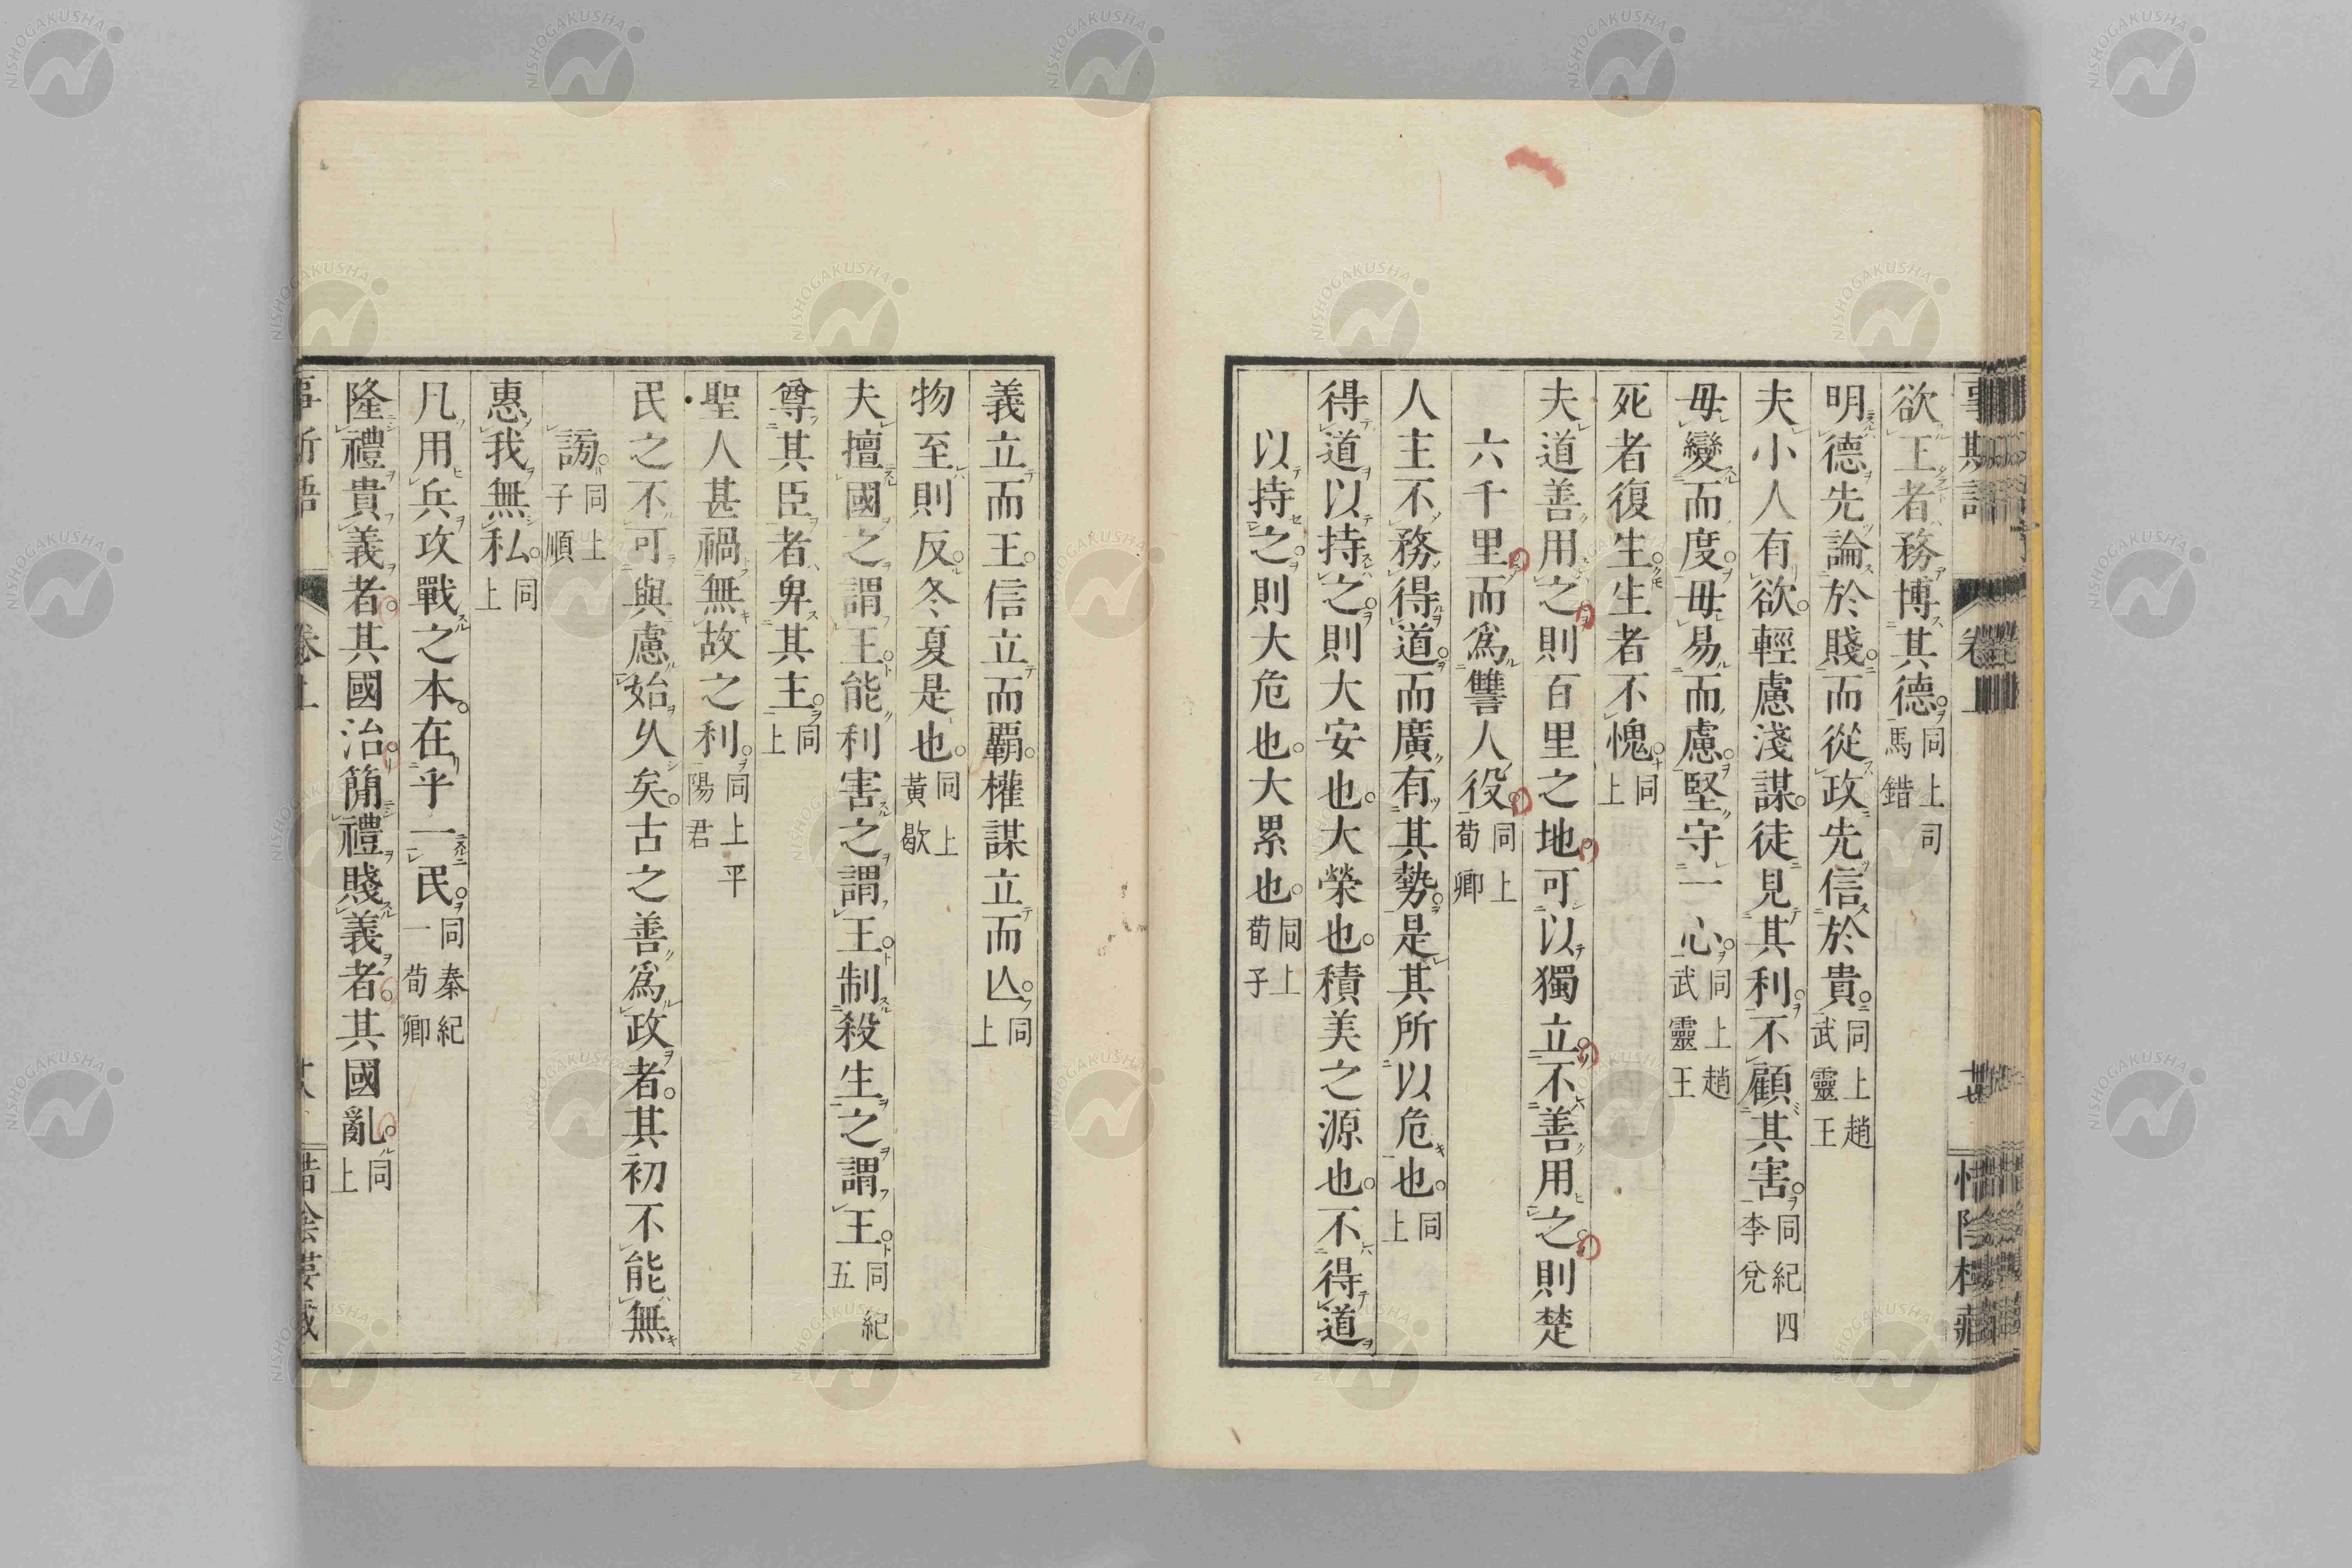 欲王者務博其德同上司馬錯
明德先論於賤而從政先信於貴同上趙武靈王
夫小人有欲輕慮淺謀徒見其利不顧其害同紀四李兌
毋變而度毋易而慮堅守一心同上趙武靈王
死者復生生者不愧同上
夫道善用之則百里之地可以獨立不善用之則楚
六千里而爲讐人役同上荀卿
人主不務得道而廣有其勢是其所以危也同上
得道以持之則大安也大榮也積美之源也不得道
以持之則大危也大累也同上荀子
義立而王信立而覇權謀立而亾同上
物至則反冬夏是也同上黃歇
夫擅國之謂王能利害之謂王制殺生之謂王同紀五
尊其臣者卑其主同上
聖人甚禍無故之利同上平陽君
民之不可與慮始乆矣古之善爲政者其初不能無
謗同上子順
惠我無私同上
凡用兵攻戰之本在乎一民同秦紀一荀卿
隆禮貴義者其國治簡禮賤義者其國亂同上
卷上
NISHOGAKUSHA